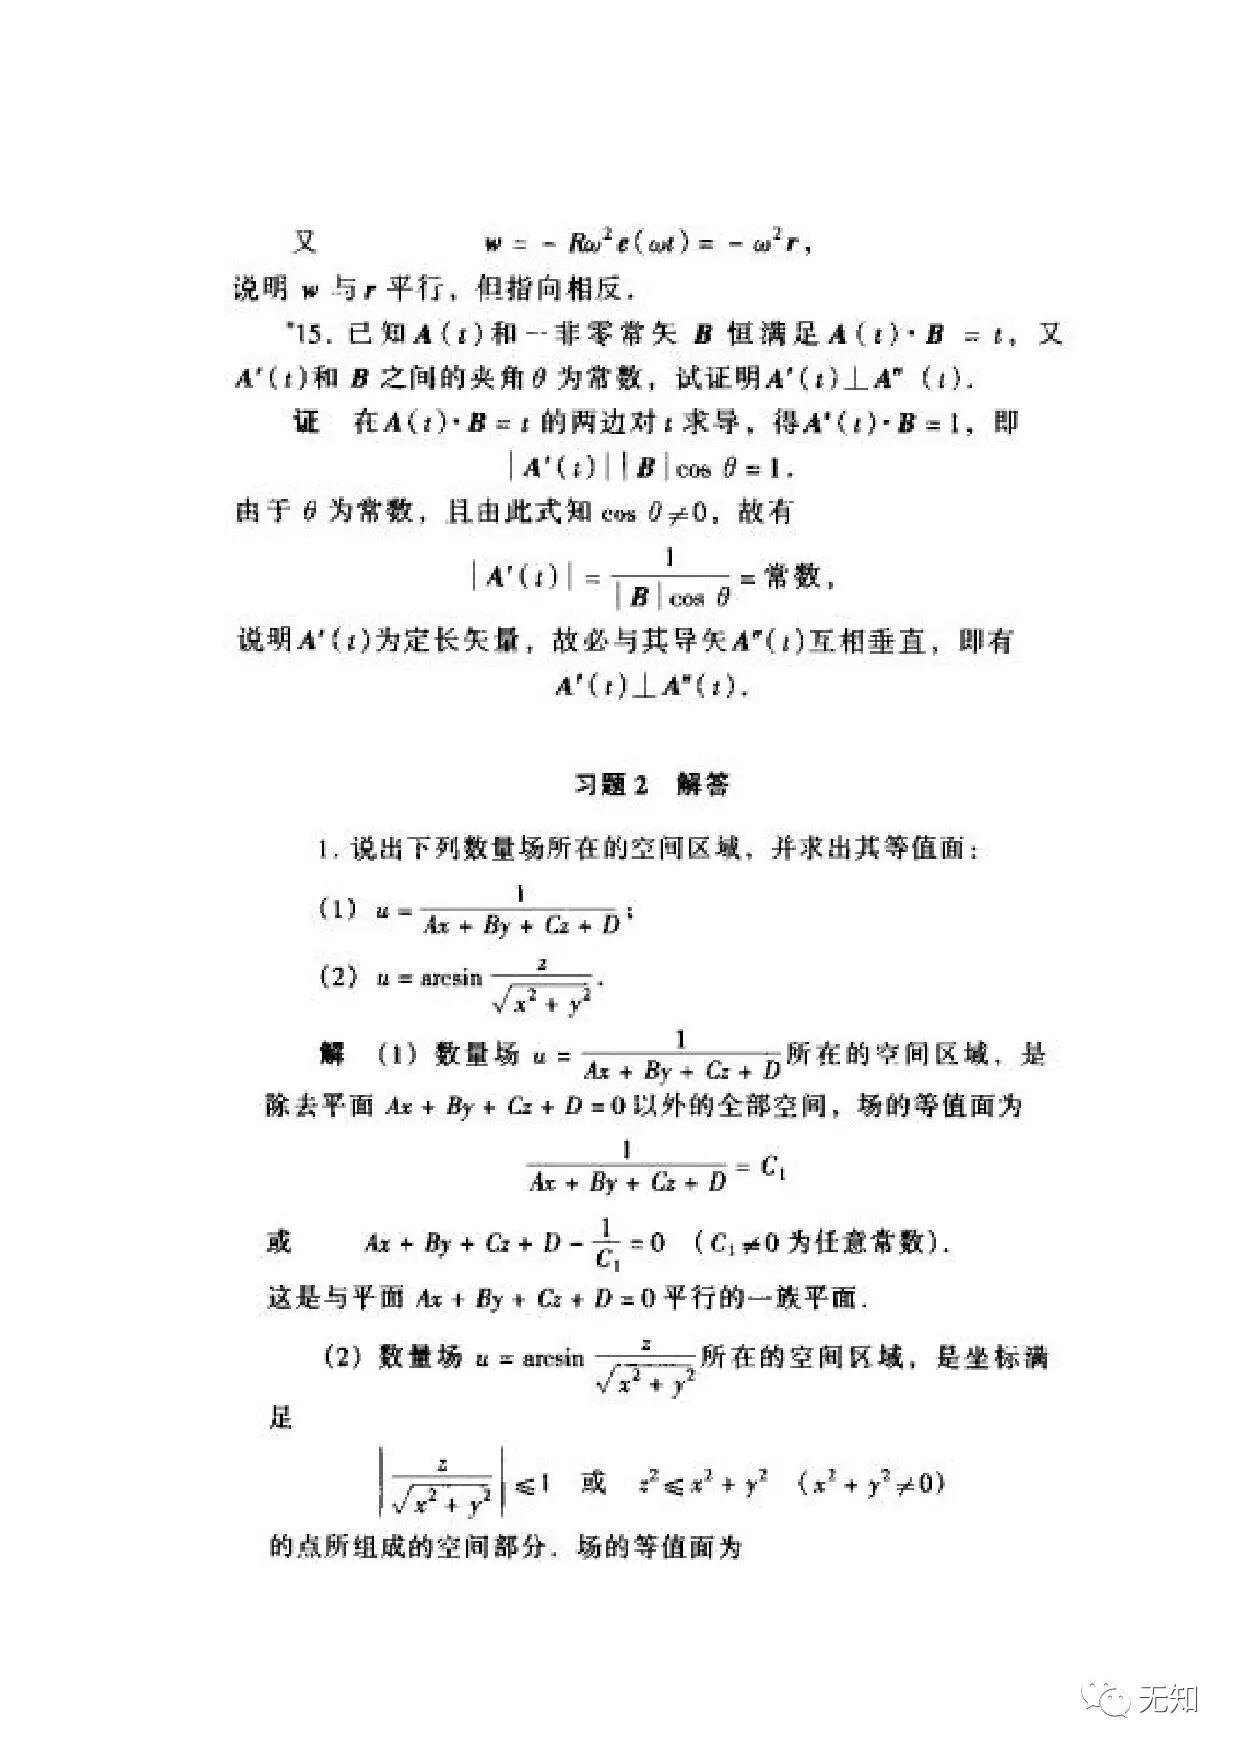 又 w = - Rω²e(ωt) = - ω²r,
说明 w 与 r 平行，但指向相反.
*15. 已知 A(t)和一非零常矢 B 恒满足 A(t)·B = t，又
A′(t)和 B 之间的夹角 θ 为常数，试证明A′(t)⊥A″(t).
证 在A(t)·B = t 的两边对 t 求导，得A′(t)·B = 1，即
|A′(t)||B|cos θ = 1.
由于 θ 为常数，且由此式知 cos θ≠0，故有
|A′(t)| = 1/(|B|cos θ) = 常数，
说明A′(t)为定长矢量，故必与其导矢A″(t)互相垂直，即有
A′(t)⊥A″(t).
习题 2 解答
1. 说出下列数量场所在的空间区域，并求出其等值面：
(1) u = 1/(Ax + By + Cz + D);
(2) u = arcsin z/√(x² + y²).
解 (1) 数量场 u = 1/(Ax + By + Cz + D) 所在的空间区域，是
除去平面 Ax + By + Cz + D = 0 以外的全部空间，场的等值面为
1/(Ax + By + Cz + D) = C₁
或 Ax + By + Cz + D - 1/C₁ = 0 (C₁≠0 为任意常数).
这是与平面 Ax + By + Cz + D = 0 平行的一族平面.
(2) 数量场 u = arcsin z/√(x² + y²) 所在的空间区域，是坐标满
足
|z/√(x² + y²)| ≤ 1 或 z² ≤ x² + y² (x² + y² ≠ 0)
的点所组成的空间部分. 场的等值面为
无知